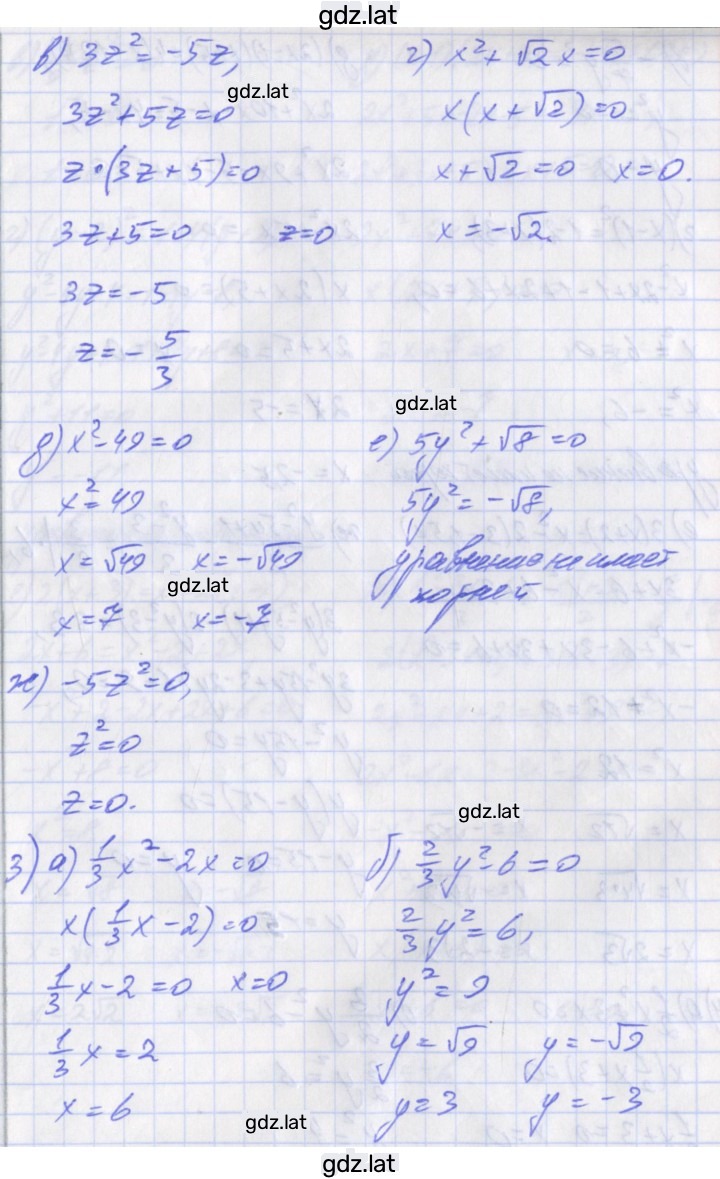 gdz.lat
в) 3z² = -5z,
gdz.lat
3z² + 5z = 0
z·(3z + 5) = 0
3z + 5 = 0 z = 0
3z = -5
z = -5/3
г) x² + √2 x = 0
x(x + √2) = 0
x + √2 = 0 x = 0.
x = -√2.
gdz.lat
д) x² - 49 = 0
x² = 49
x = √49 x = -√49
gdz.lat
x = 7 x = -7
е) 5y² + √8 = 0
5y² = -√8,
уравнение не имеет
корней
ж) -5z² = 0,
z² = 0
z = 0.
gdz.lat
3) а) 1/3 x² - 2x = 0
x(1/3 x - 2) = 0
1/3 x - 2 = 0 x = 0
1/3 x = 2
x = 6
б) 2/3 y² - 6 = 0
2/3 y² = 6,
y² = 9
y = √9 y = -√9
y = 3 y = -3
gdz.lat
gdz.lat